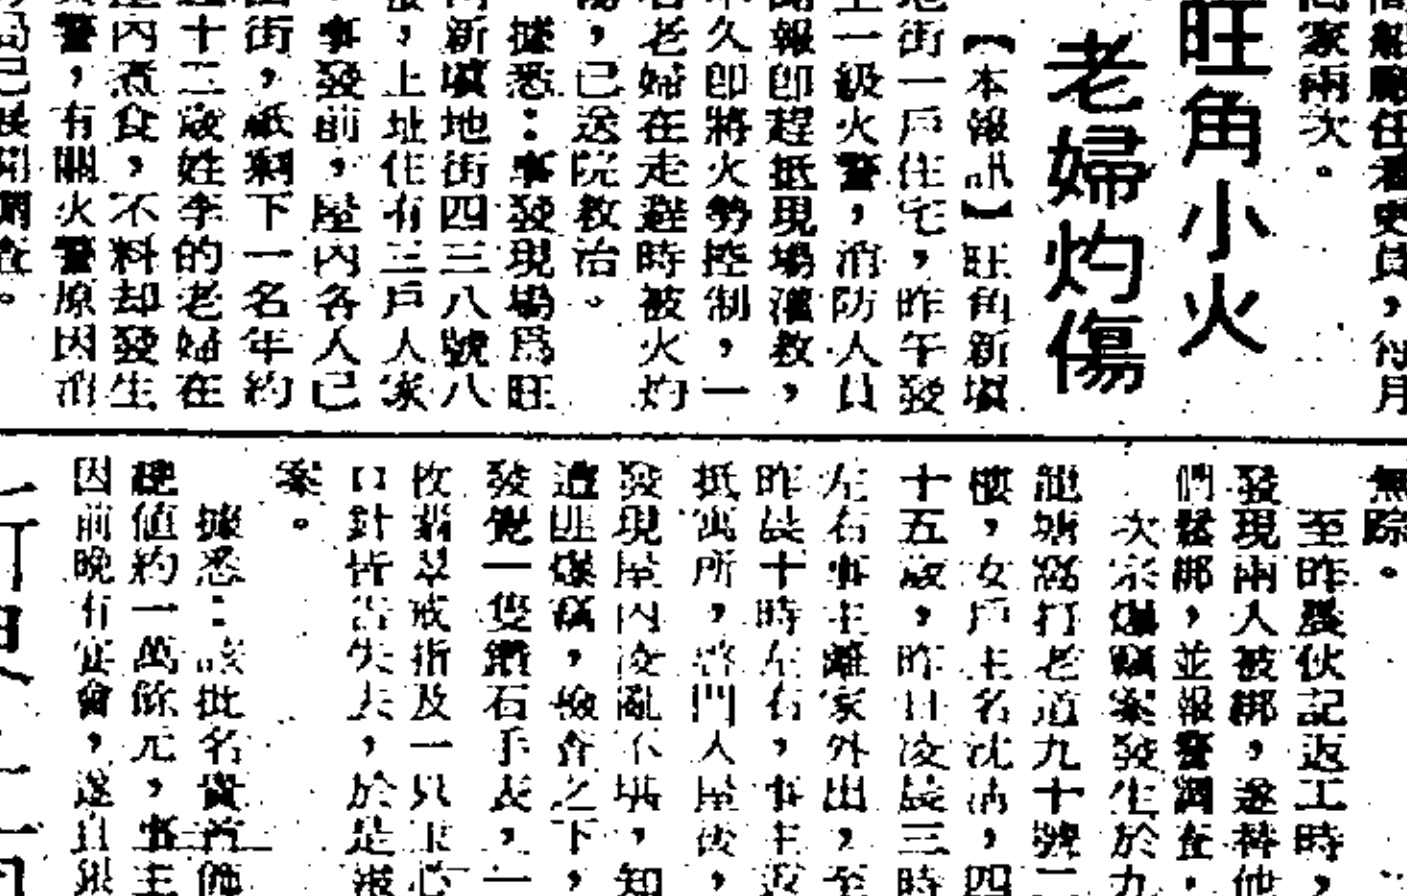 兩次。
旺角小火
老婦灼傷
【本報訊】旺角新填
地街一戶住宅，昨午發
生一級火警，消防人員
聞報即趕抵現場灌救，
不久即將火勢控制，一
名老婦在走避時被火灼
傷，已送院救治。
據悉：事發現場為旺
角新填地街四三八號八
樓，上址住有三戶人家
事發前，屋內各人已
街，祇剩下一名年約
十二歲姓李的老婦在
屋內煮食，不料却發生
警，有關火警原因消
局已展開調查。
無踪。
至昨晨伙記返工時，
發現兩人被綁，遂替他
們鬆綁，並報警調查。
次宗爆竊案發生於九
龍塘窩打老道九十號二
樓，女戶主名沈，四
十五歲，昨日凌晨三時
左右事主離家外出，至
昨晨十時左右，事主返
抵寓所，啓門入屋後，
發現屋內凌亂不堪，知
遭匪爆竊，檢查之下，
發覺一隻鑽石手表，一
枚翡翠戒指及一只玉心
口針皆告失去，於是報
案。
據悉：該批名貴首飾
總值約一萬餘元，事主
因前晚有宴會，遂且